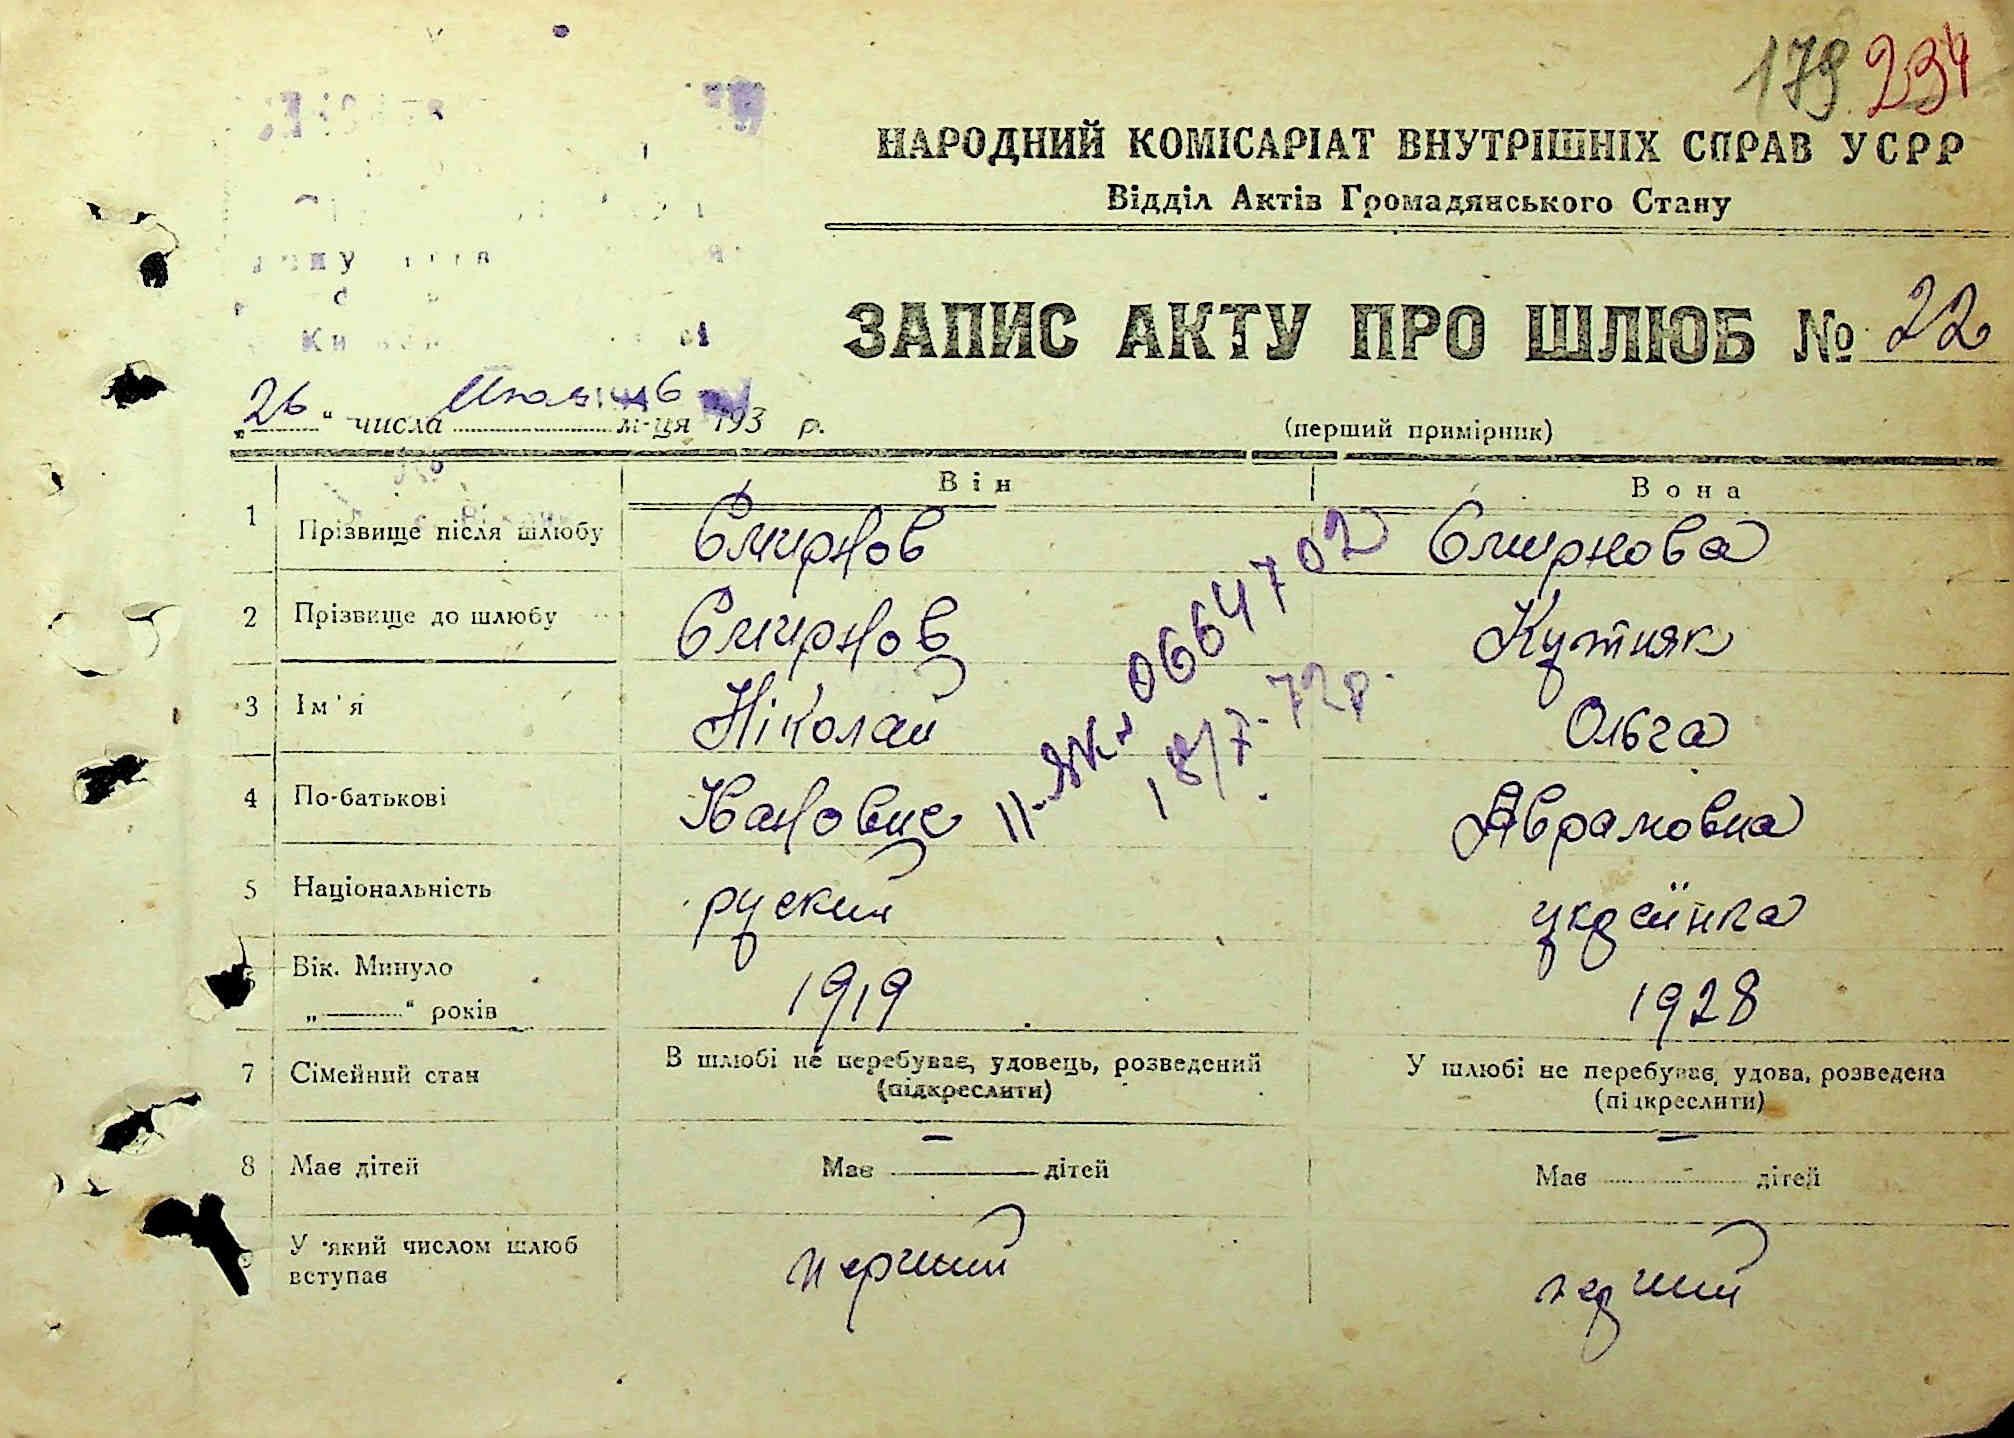 179 234
НАРОДНИЙ КОМІСАРІАТ ВНУТРІШНІХ СПРАВ УСРР
Відділ Актів Громадянського Стану
ЗАПИС АКТУ ПРО ШЛЮБ № 22
„26“ числа м-ця 193 р.
(перший примірник)
Він Вона
1 Прізвище після шлюбу Смирнов Смирнова
2 Прізвище до шлюбу Смирнов Кутняк
3 Ім'я Ніколай Ольга
4 По-батькові Аврамовна
5 Національність руский українка
Вік. Минуло
„ “ років 1919 1928
7 Сімейний стан В шлюбі не перебуває, удовець, розведений У шлюбі не перебуває, удова, розведена
(підкреслити) (підкреслити)
8 Має дітей Має — дітей Має - дітей
У який числом шлюб
вступає перший перший
0664702
18/7-72р.